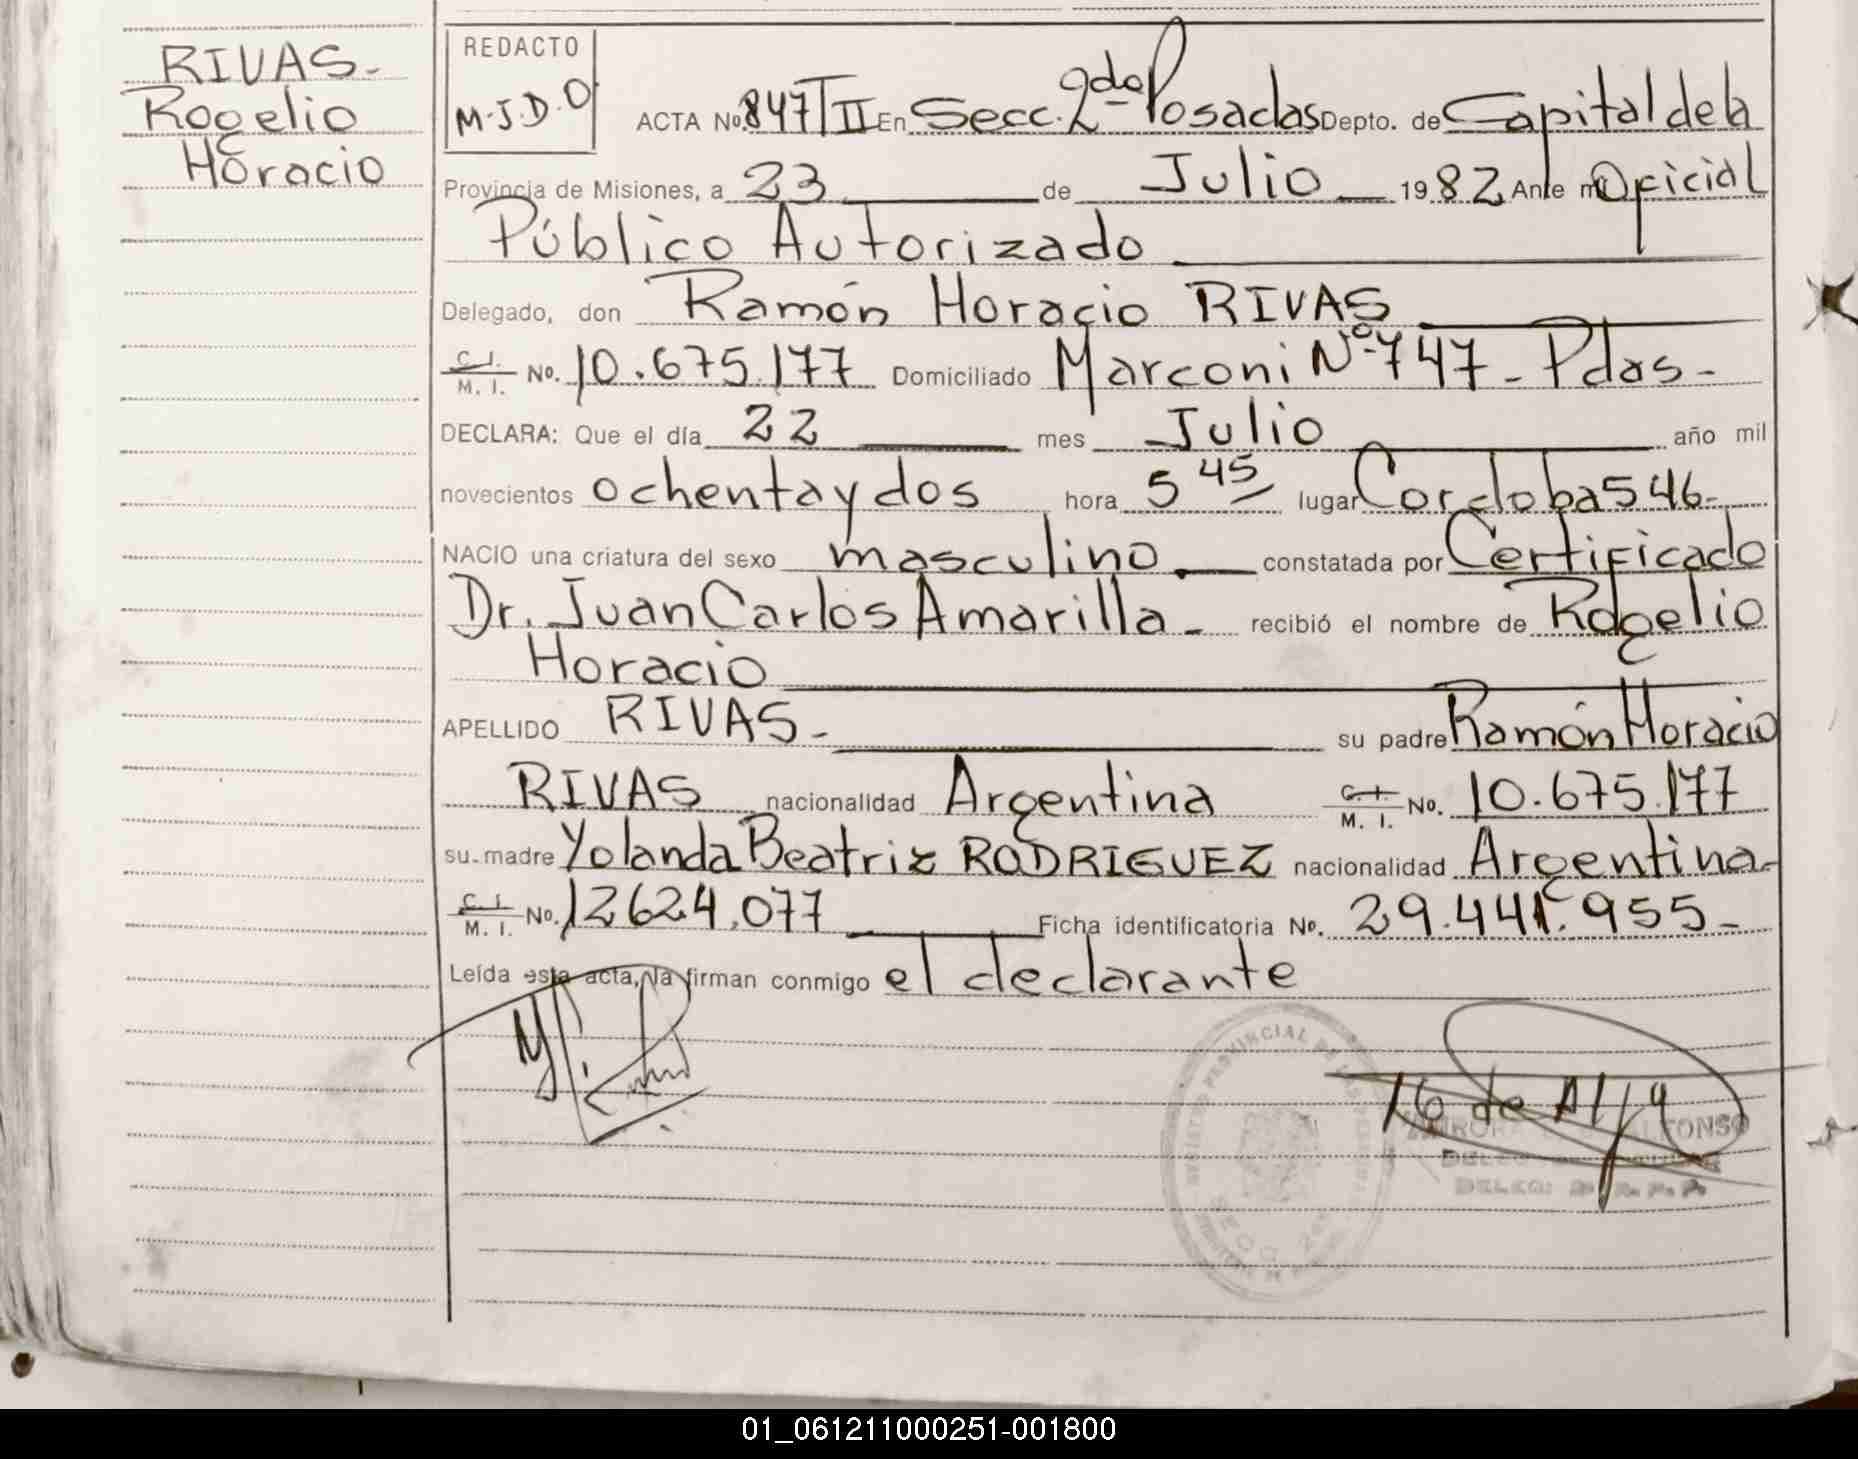 RIVAS-
Rogelio
Horacio
REDACTO
M.J.D.O
ACTA No. 847/II En Secc. 2da Posadas Depto. de Capital de la
Provincia de Misiones, a 23 de Julio 1982 Ante mi Oficial
Público Autorizado
Delegado, don Ramón Horacio RIVAS
C. I. M. I. No. 10.675.177 Domiciliado Marconi Nº 747 - Pdas-
DECLARA: Que el día 22 mes Julio año mil
novecientos ochenta y dos hora 5 45 lugar Cordoba 546-
NACIO una criatura del sexo masculino constatada por Certificado
Dr. Juan Carlos Amarilla- recibió el nombre de Rogelio
Horacio
APELLIDO RIVAS- su padre Ramón Horacio
RIVAS nacionalidad Argentina C. I. M. I. No. 10.675.177
su madre Yolanda Beatriz RODRIGUEZ nacionalidad Argentina-
C. I. M. I. No. 12624.077 Ficha identificatoria No. 29.441.955-
Leída esta acta, la firman conmigo el declarante
01_061211000251-001800